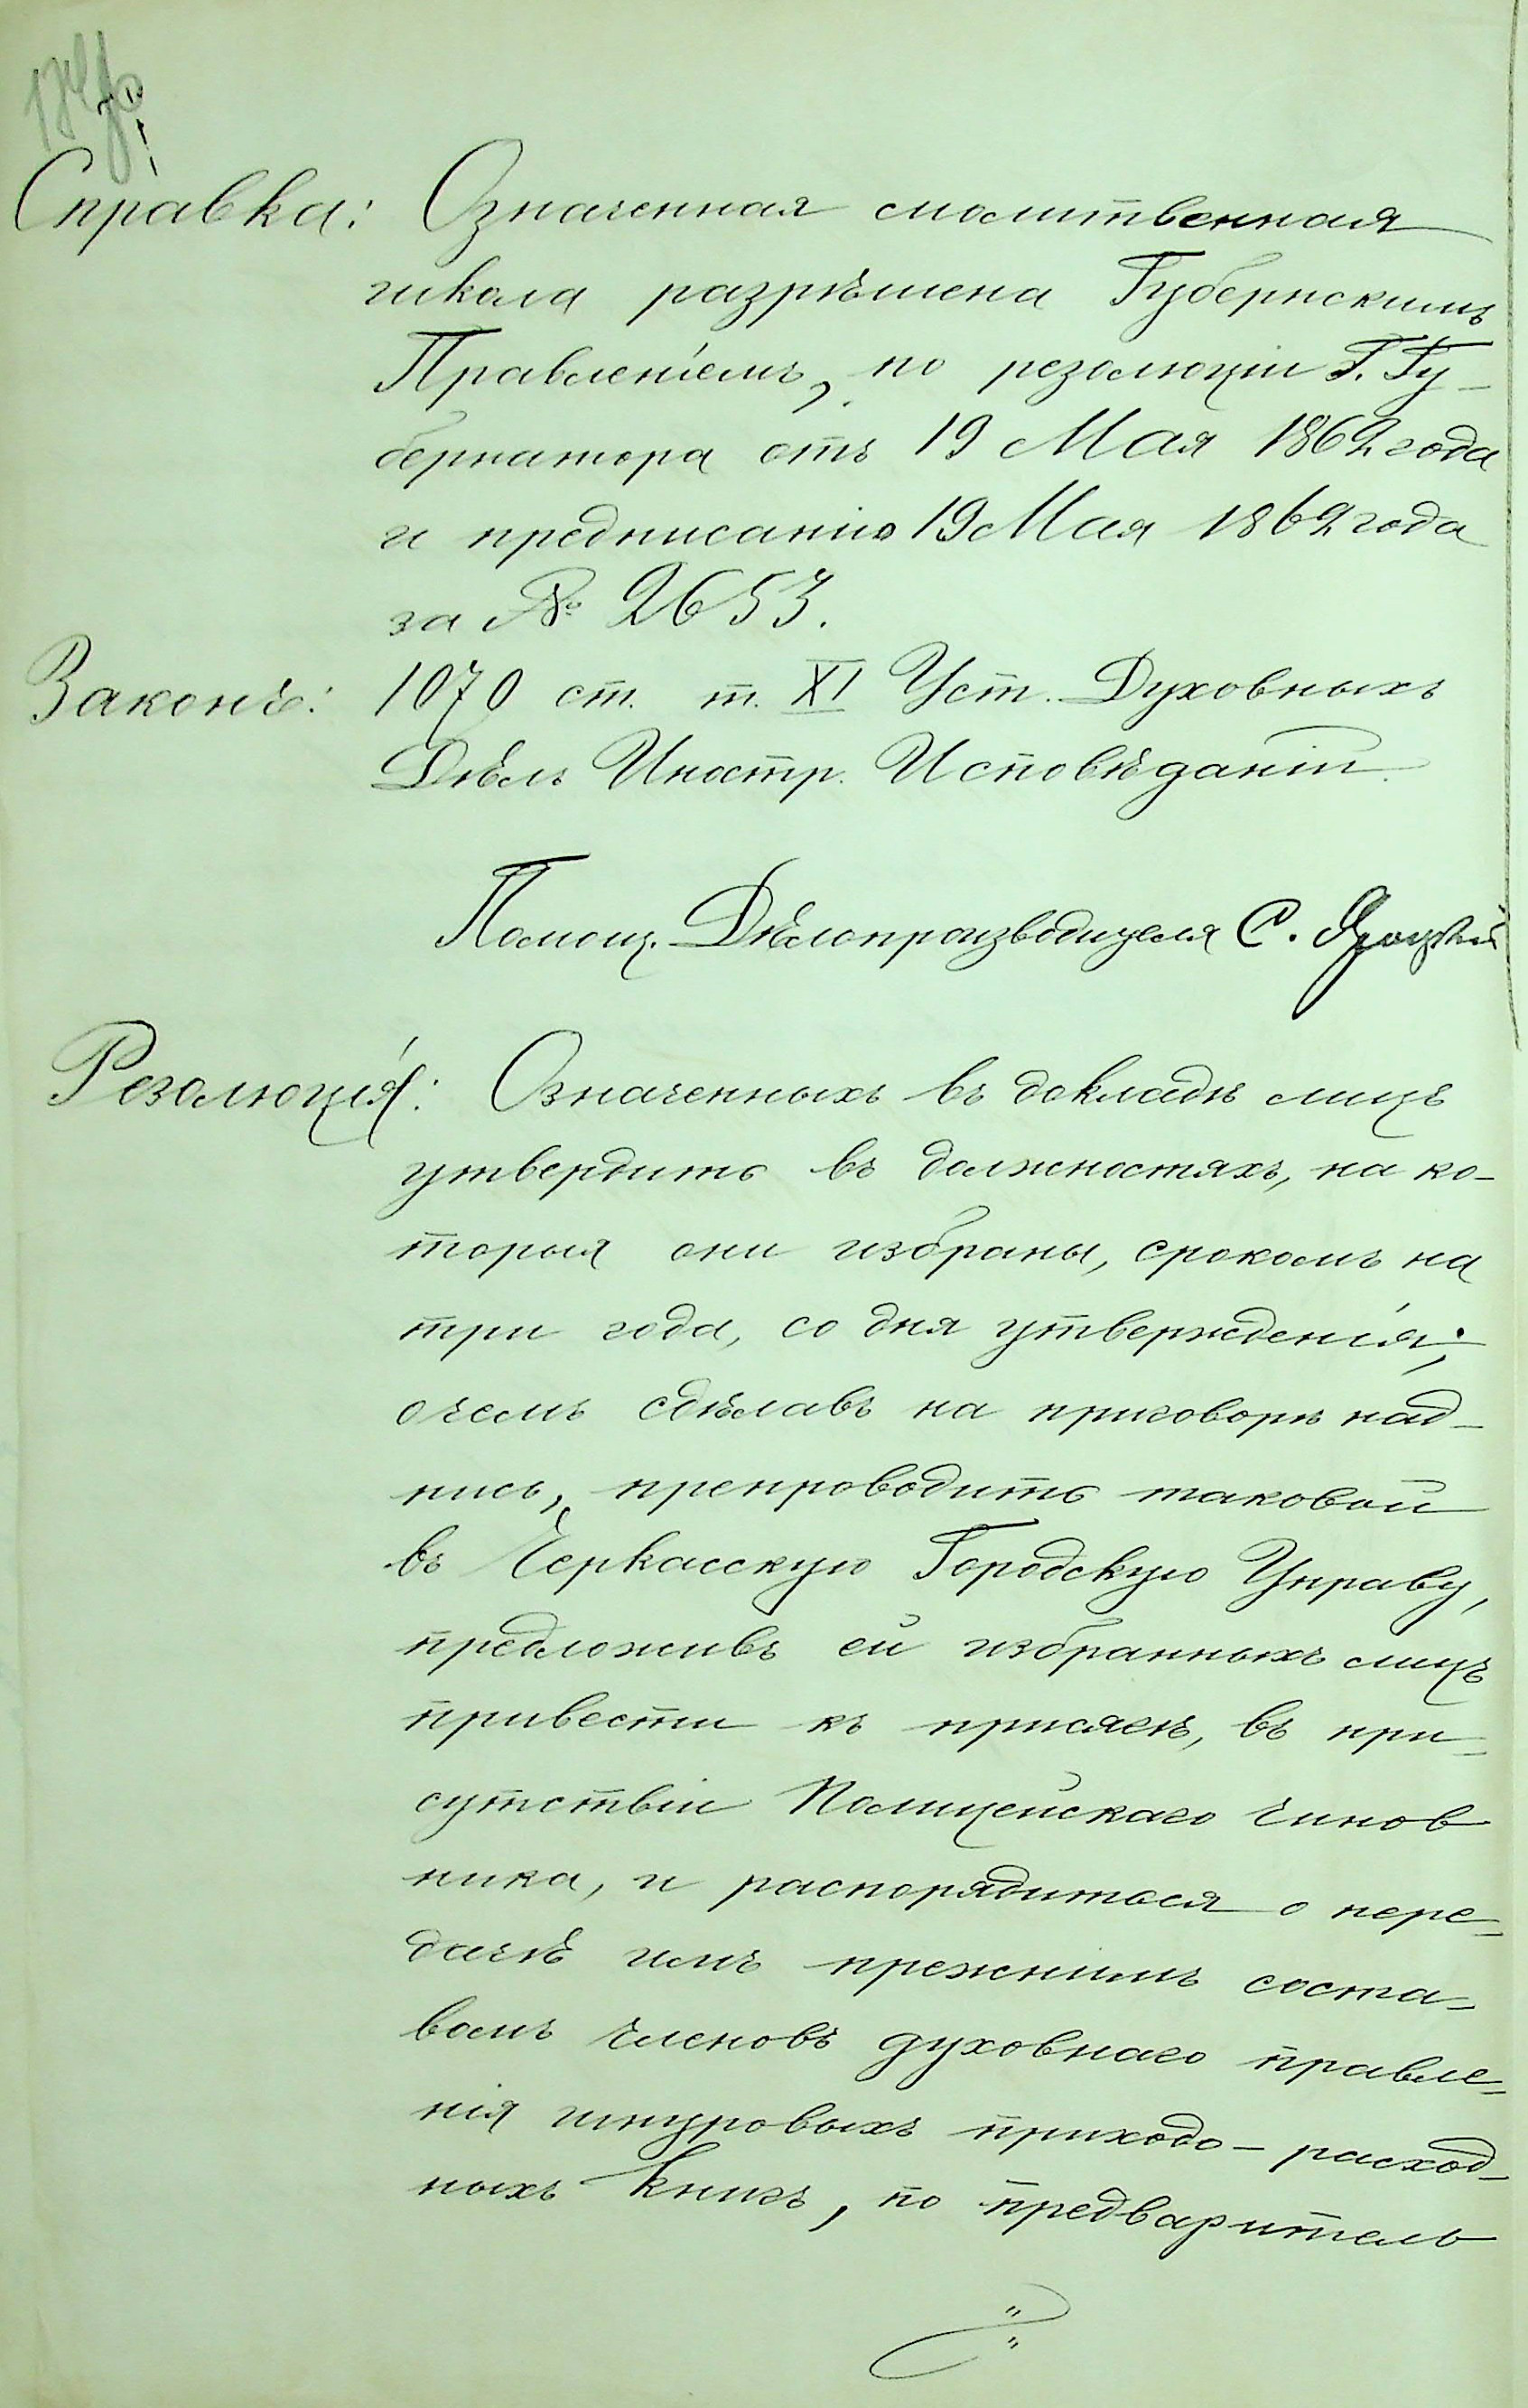 Справка: Означенная молитвенная
школа разрѣшена Губернскимъ
Правленіемъ, по резолюціи Г. Гу-
бернатора отъ 19 Мая 1862 года
и предписанію 19 Мая 1862 года
за № 2653.
Законъ: 1070 ст. т. XI Уст. Духовныхъ
Дѣлъ Иностр. Исповѣданій.
Помощ. Дѣлопроизводителя С.
Резолюція: Означенныхъ въ докладѣ лицъ
утвердить въ должностяхъ, на ко-
торыя они избраны, срокомъ на
три года, со дня утвержденія;
о чемъ сдѣлавъ на приговорѣ над-
пись, препроводить таковой
въ Черкасскую Городскую Управу,
предложивъ ей избранныхъ лицъ
привести къ присягѣ, въ при-
сутствіи Полицейскаго чинов
ника, и распорядиться о пере-
дачѣ имъ прежнимъ соста-
вомъ членовъ духовнаго правле-
нія шнуровыхъ приходо-расход-
ныхъ книгъ, по предваритель